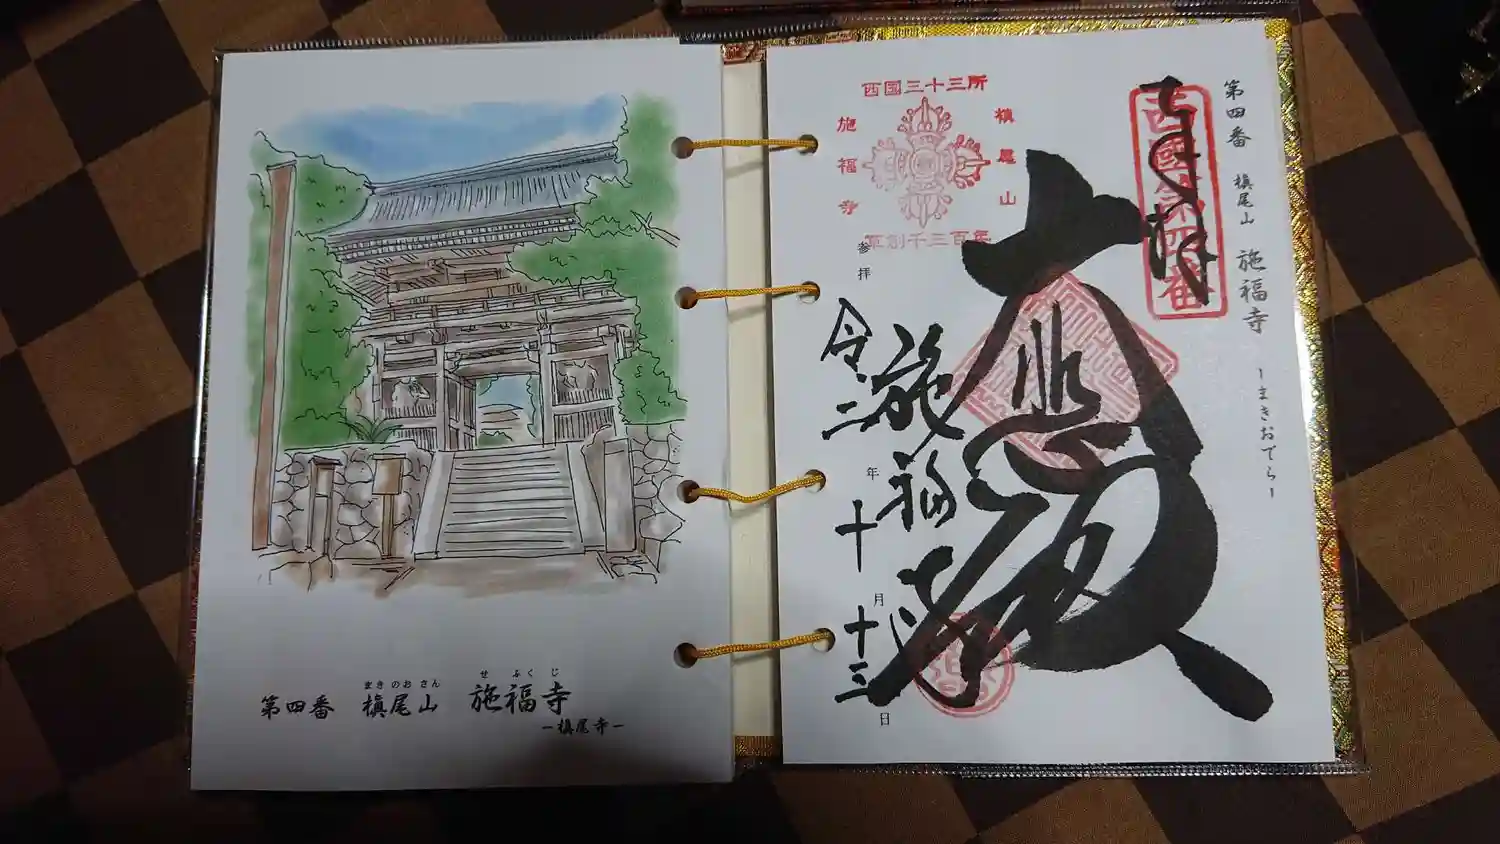 第四番 槇尾山 施福寺
まきのおさん せふくじ
－槇尾寺－
第四番 槇尾山 施福寺 －まきおでら－
西國第四番
西国三十三所
槇尾山
施福寺
草創千三百年
大悲殿
参拝
令二年十月十三日
施福寺